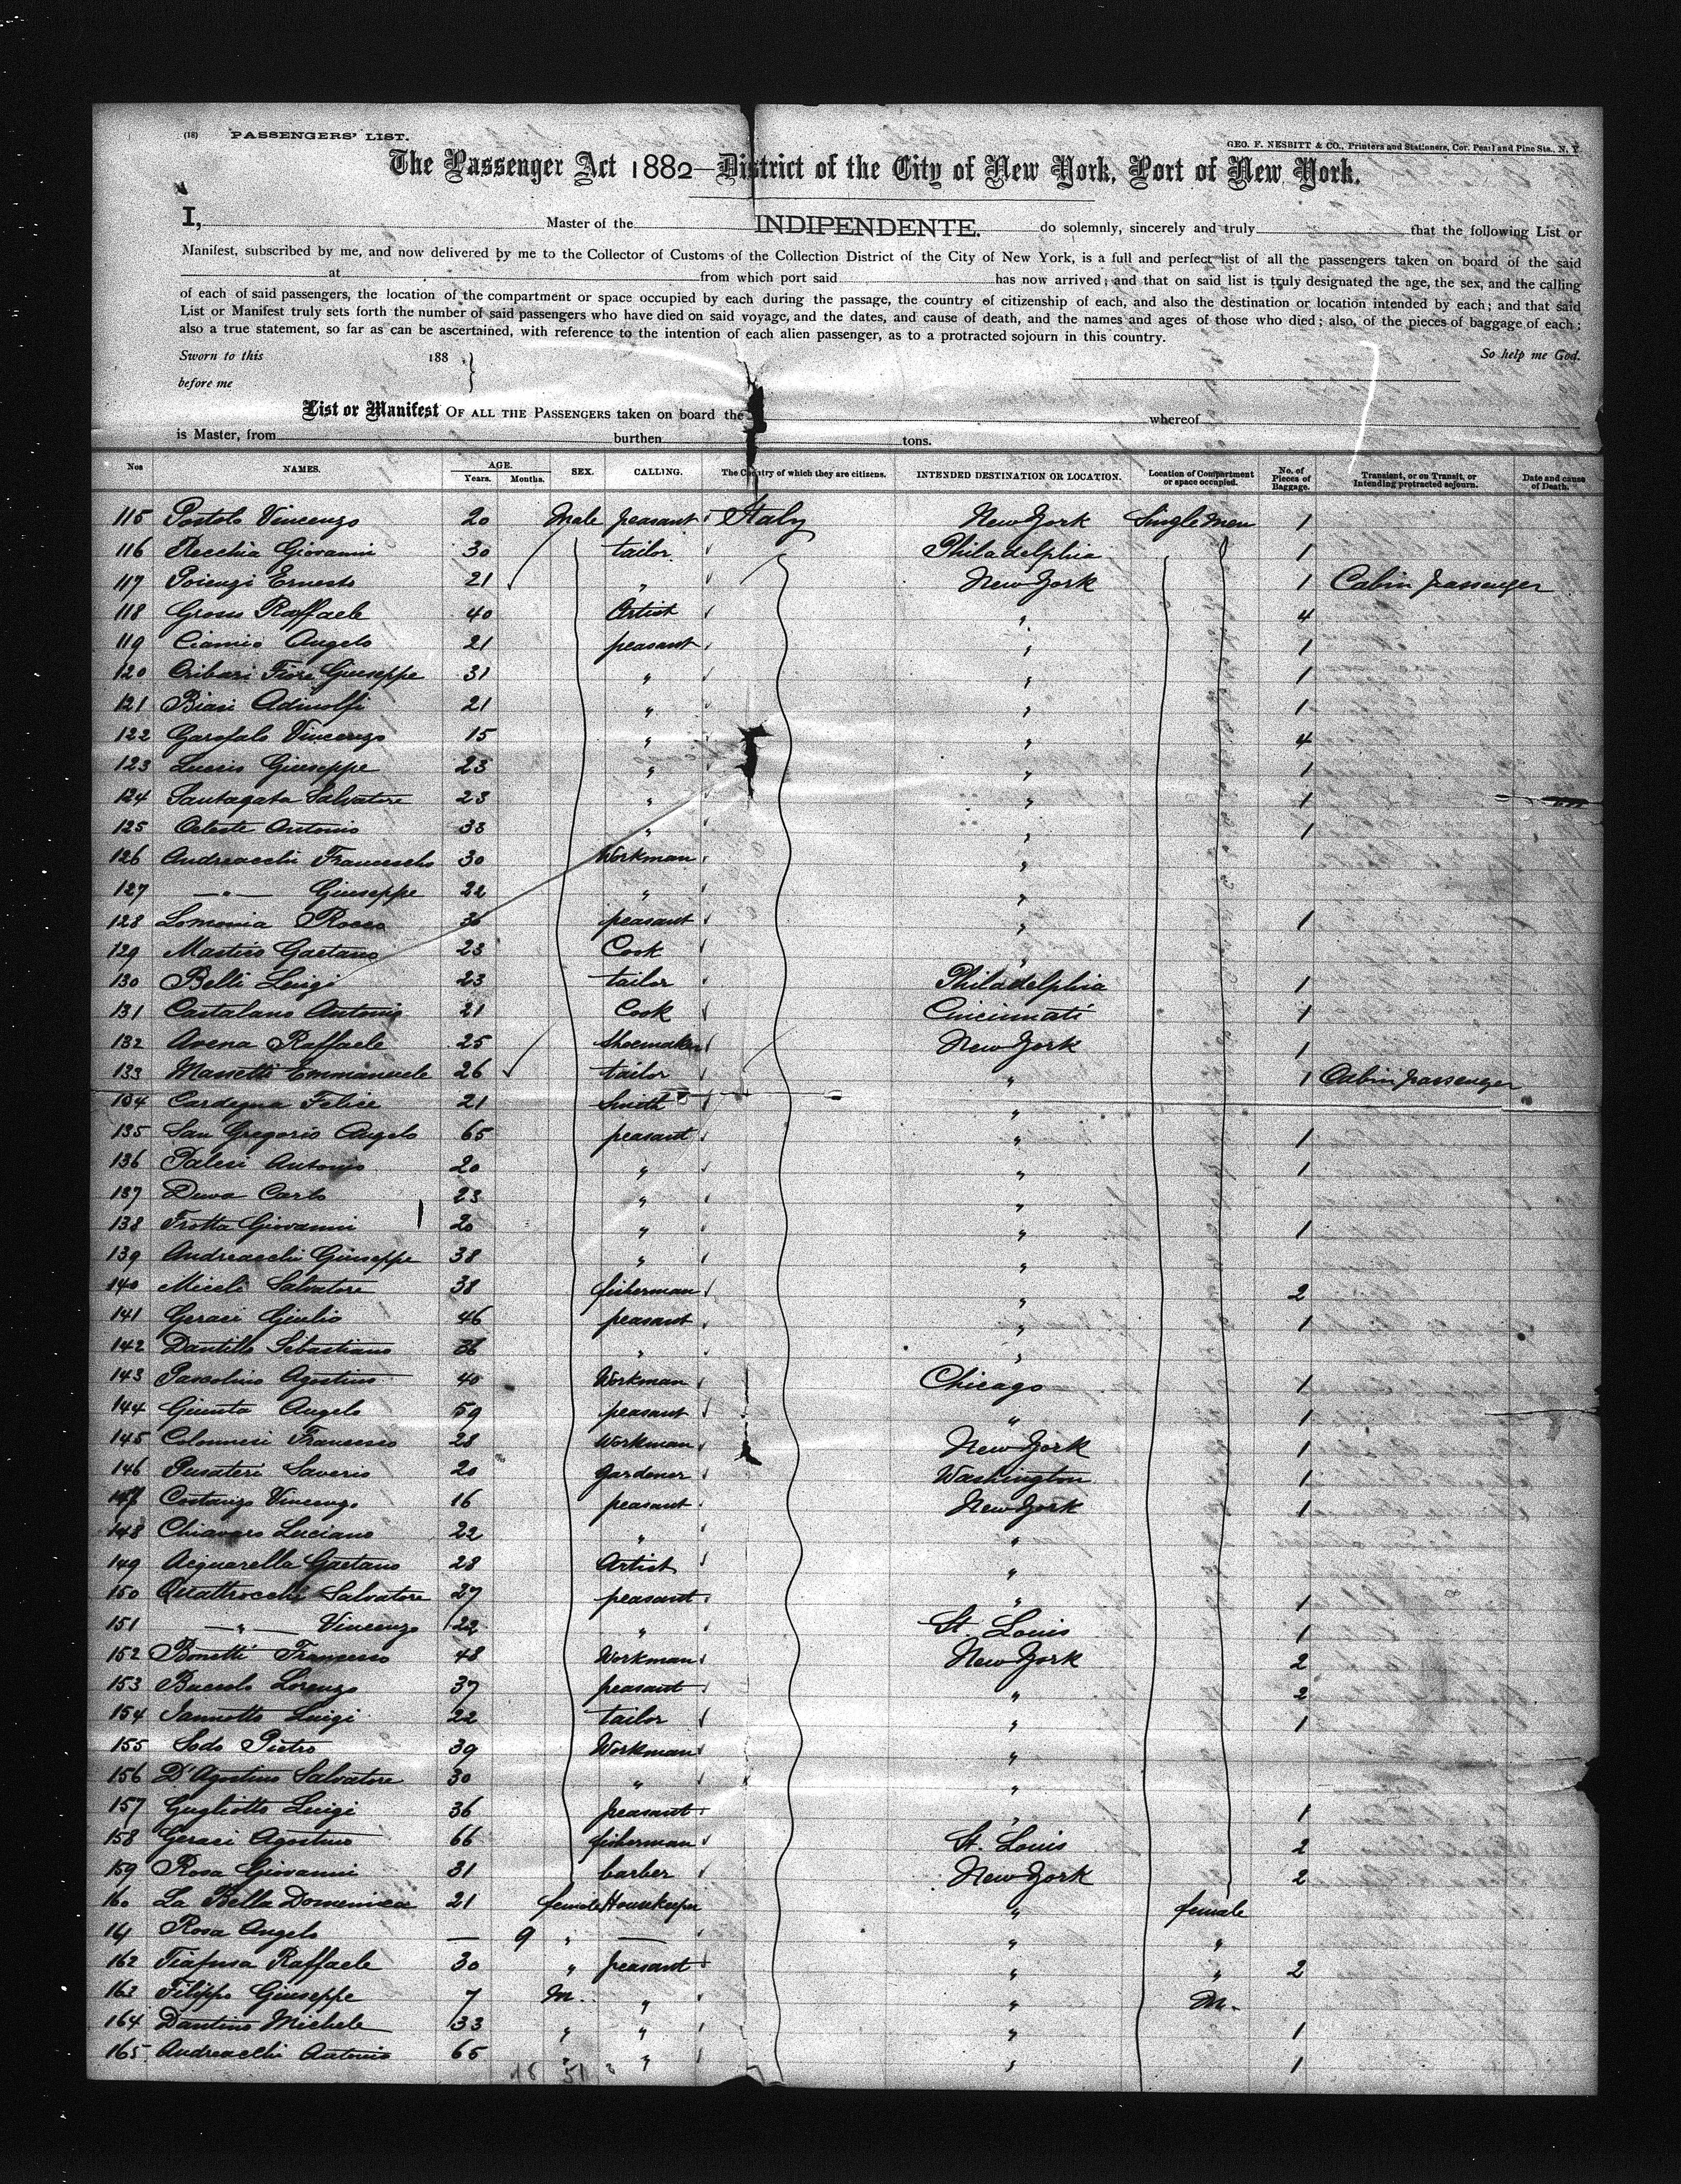 (18) PASSENGERS' LIST.
GEO. F. NESBITT & CO., Printers and Stationers, Cor. Pearl and Pine Sts., N. Y.
The Passenger Act 1882—District of the City of New York, Port of New York.
I, Master of the INDIPENDENTE. do solemnly, sincerely and truly that the following List or
Manifest, subscribed by me, and now delivered by me to the Collector of Customs of the Collection District of the City of New York, is a full and perfect list of all the passengers taken on board of the said
at from which port said has now arrived; and that on said list is truly designated the age, the sex, and the calling
of each of said passengers, the location of the compartment or space occupied by each during the passage, the country of citizenship of each, and also the destination or location intended by each; and that said
List or Manifest truly sets forth the number of said passengers who have died on said voyage, and the dates, and cause of death, and the names and ages of those who died; also, of the pieces of baggage of each;
also a true statement, so far as can be ascertained, with reference to the intention of each alien passenger, as to a protracted sojourn in this country.
Sworn to this 188 } So help me God.
before me
List or Manifest OF ALL THE PASSENGERS taken on board the whereof
is Master, from burthen tons.
Nos NAMES. AGE. Years. Months. SEX. CALLING. The Country of which they are citizens. INTENDED DESTINATION OR LOCATION. Location of Compartment or space occupied. No. of Pieces of Baggage. Transient, or on Transit, or Intending protracted sojourn. Date and cause of Death.
115 Postolo Vincenzo 20 Male peasant Italy New York Single Men 1
116 Recchia Giovanni 30 tailor Philadelphia 1
117 Ernesto 21 " New York 1 Cabin passenger
118 Grosso Raffaele 40 Artist " 4
119 Angelo 21 peasant " 1
120 Fiore Giuseppe 31 " " 1
121 Biasi Adinolfi 21 " " 1
122 Garofalo Vincenzo 15 " " 4
123 Giuseppe 23 " " 1
124 Santagata Salvatore 23 " " 1
125 Celeste Antonio 33 " " 1
126 Andreacchi Francescho 30 Workman "
127 —"— Giuseppe 22 " "
128 Lomonia Rocco 36 peasant " 1
129 Gaetano 23 Cook "
130 Belli Luigi 23 tailor Philadelphia 1
131 Castalano Antonio 21 Cook Cincinnati 1
132 Avena Raffaele 25 Shoemaker New York 1
133 Massetti Emmanuele 26 tailor " 1 Cabin passenger
134 Cardegna Felice 21 Smith "
135 San Gregorio Angelo 65 peasant " 1
136 Antonio 20 " " 1
137 Carlo 23 " "
138 Frotta Giovanni 20 " " 1
139 Andreacchi Giuseppe 38 " "
140 Miceli Salvatore 38 fisherman " 2
141 Geraci Giulio 46 peasant " 1
142 Dantillo Sebastiano " "
143 Agostino 40 Workman Chicago 1
144 Giunta Angelo 59 peasant " 1
145 Colonnesi Francesco 28 Workman New York 1
146 Pusateri Saverio 20 gardener Washington 1
147 Costanzo Vincenzo 16 peasant New York 1
148 Chiavaro Luciano 22 " "
149 Acquarella Gaetano 28 Artist "
150 Quattrocchi Salvatore 27 peasant " 1
151 —"— Vincenzo 22 " St. Louis 1
152 Bonetti Francesco 48 Workman New York 2
153 Lorenzo 37 peasant " 2
154 Iannotto Luigi 22 tailor " 1
155 Sodo Pietro 39 Workman "
156 D'Agostino Salvatore 30 " "
157 Gugliotto Luigi 36 peasant " 1
158 Geraci Agostino 66 fisherman St. Louis 2
159 Rosa Giovanni 31 barber New York 2
160 La Bella Domenica 21 female Housekeeper " female
161 Rosa Angelo — 9 " — " "
162 Raffaele 30 " peasant " " 2
163 Filippo Giuseppe 7 M. " " M.
164 Dantino Michele 33 " " " 1
165 Andreacchi Antonio 65 " " " 1